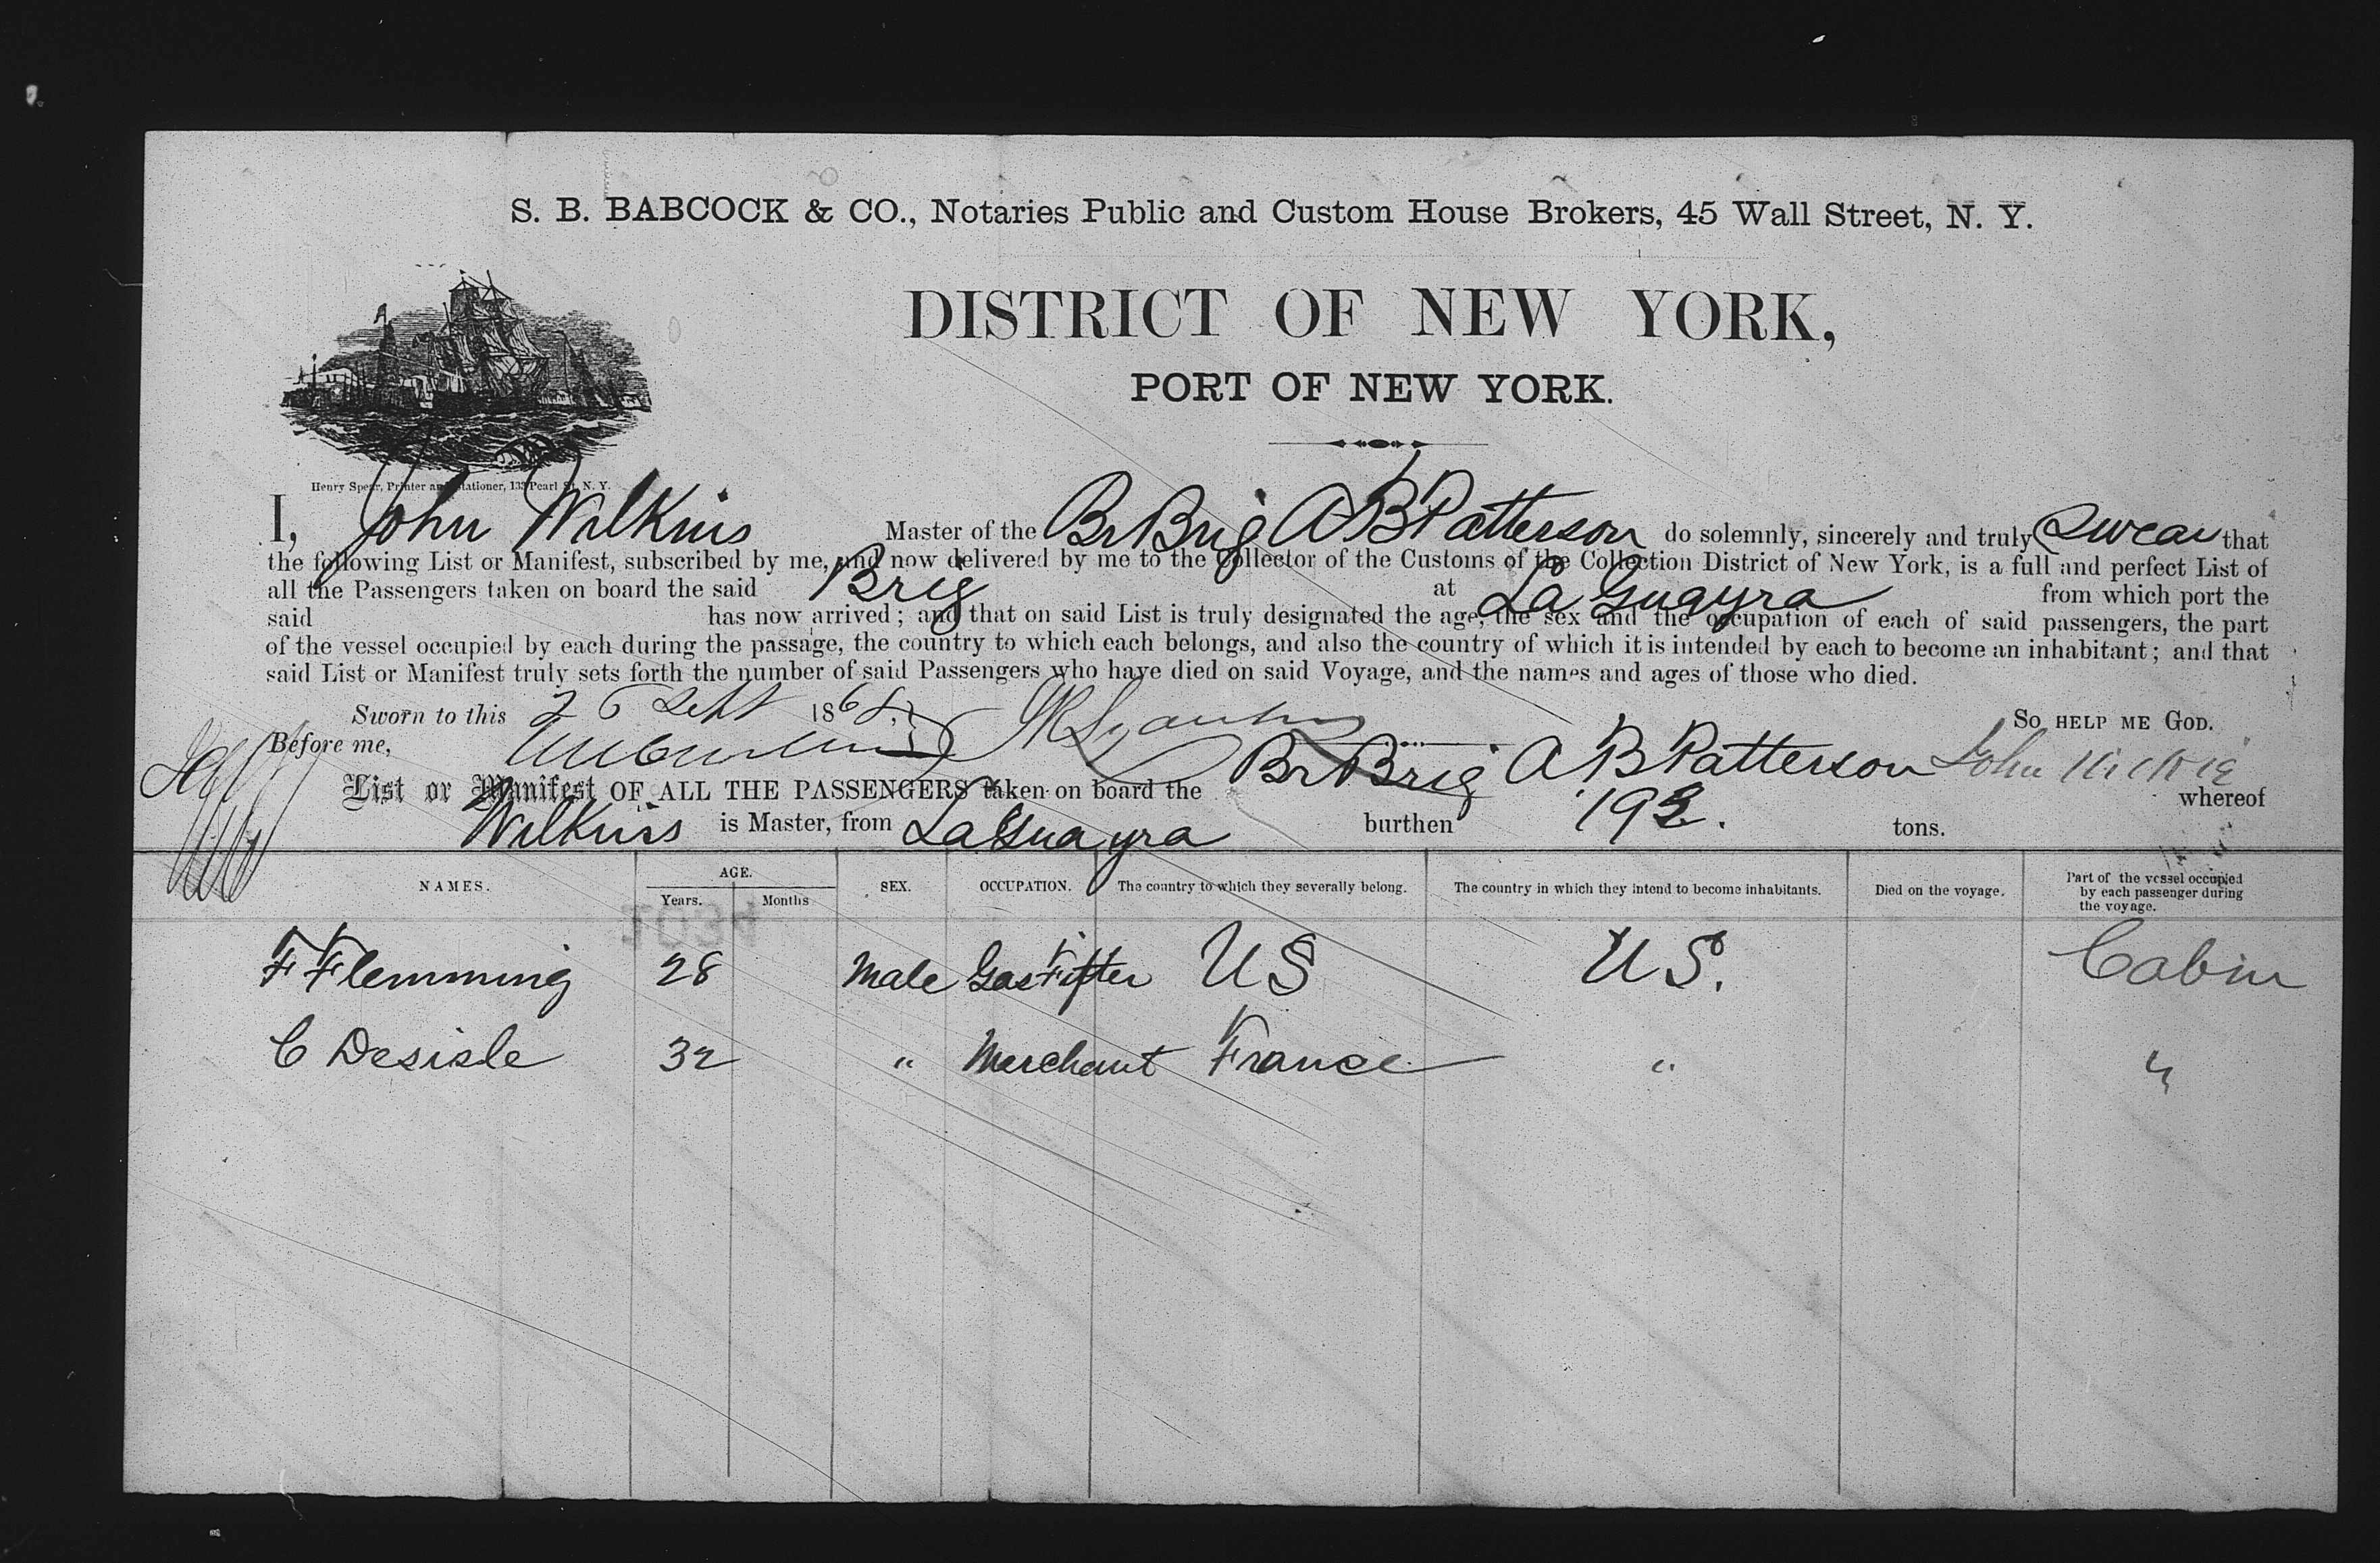 S. B. BABCOCK & CO., Notaries Public and Custom House Brokers, 45 Wall Street, N. Y.
DISTRICT OF NEW YORK,
PORT OF NEW YORK.
Henry Spear, Printer and Stationer, 133 Pearl St, N. Y.
I, John Wilkins Master of the Br Brig A B Patterson do solemnly, sincerely and truly swear that
the following List or Manifest, subscribed by me, and now delivered by me to the Collector of the Customs of the Collection District of New York, is a full and perfect List of
all the Passengers taken on board the said Brig at La Guayra from which port the
said has now arrived; and that on said List is truly designated the age, the sex and the occupation of each of said passengers, the part
of the vessel occupied by each during the passage, the country to which each belongs, and also the country of which it is intended by each to become an inhabitant; and that
said List or Manifest truly sets forth the number of said Passengers who have died on said Voyage, and the names and ages of those who died.
Sworn to this 26 Sept 1868. So HELP ME GOD.
Before me,
List or Manifest OF ALL THE PASSENGERS taken on board the Br Brig A B Patterson John whereof
Wilkins is Master, from La Guayra burthen 192. tons.
NAMES. AGE. Years. Months SEX. OCCUPATION. The country to which they severally belong. The country in which they intend to become inhabitants. Died on the voyage. Part of the vessel occupied by each passenger during the voyage.
F Flemming 28 Male Gas Fitter U S U S. Cabin
C Desisle 32 " Merchant France " "